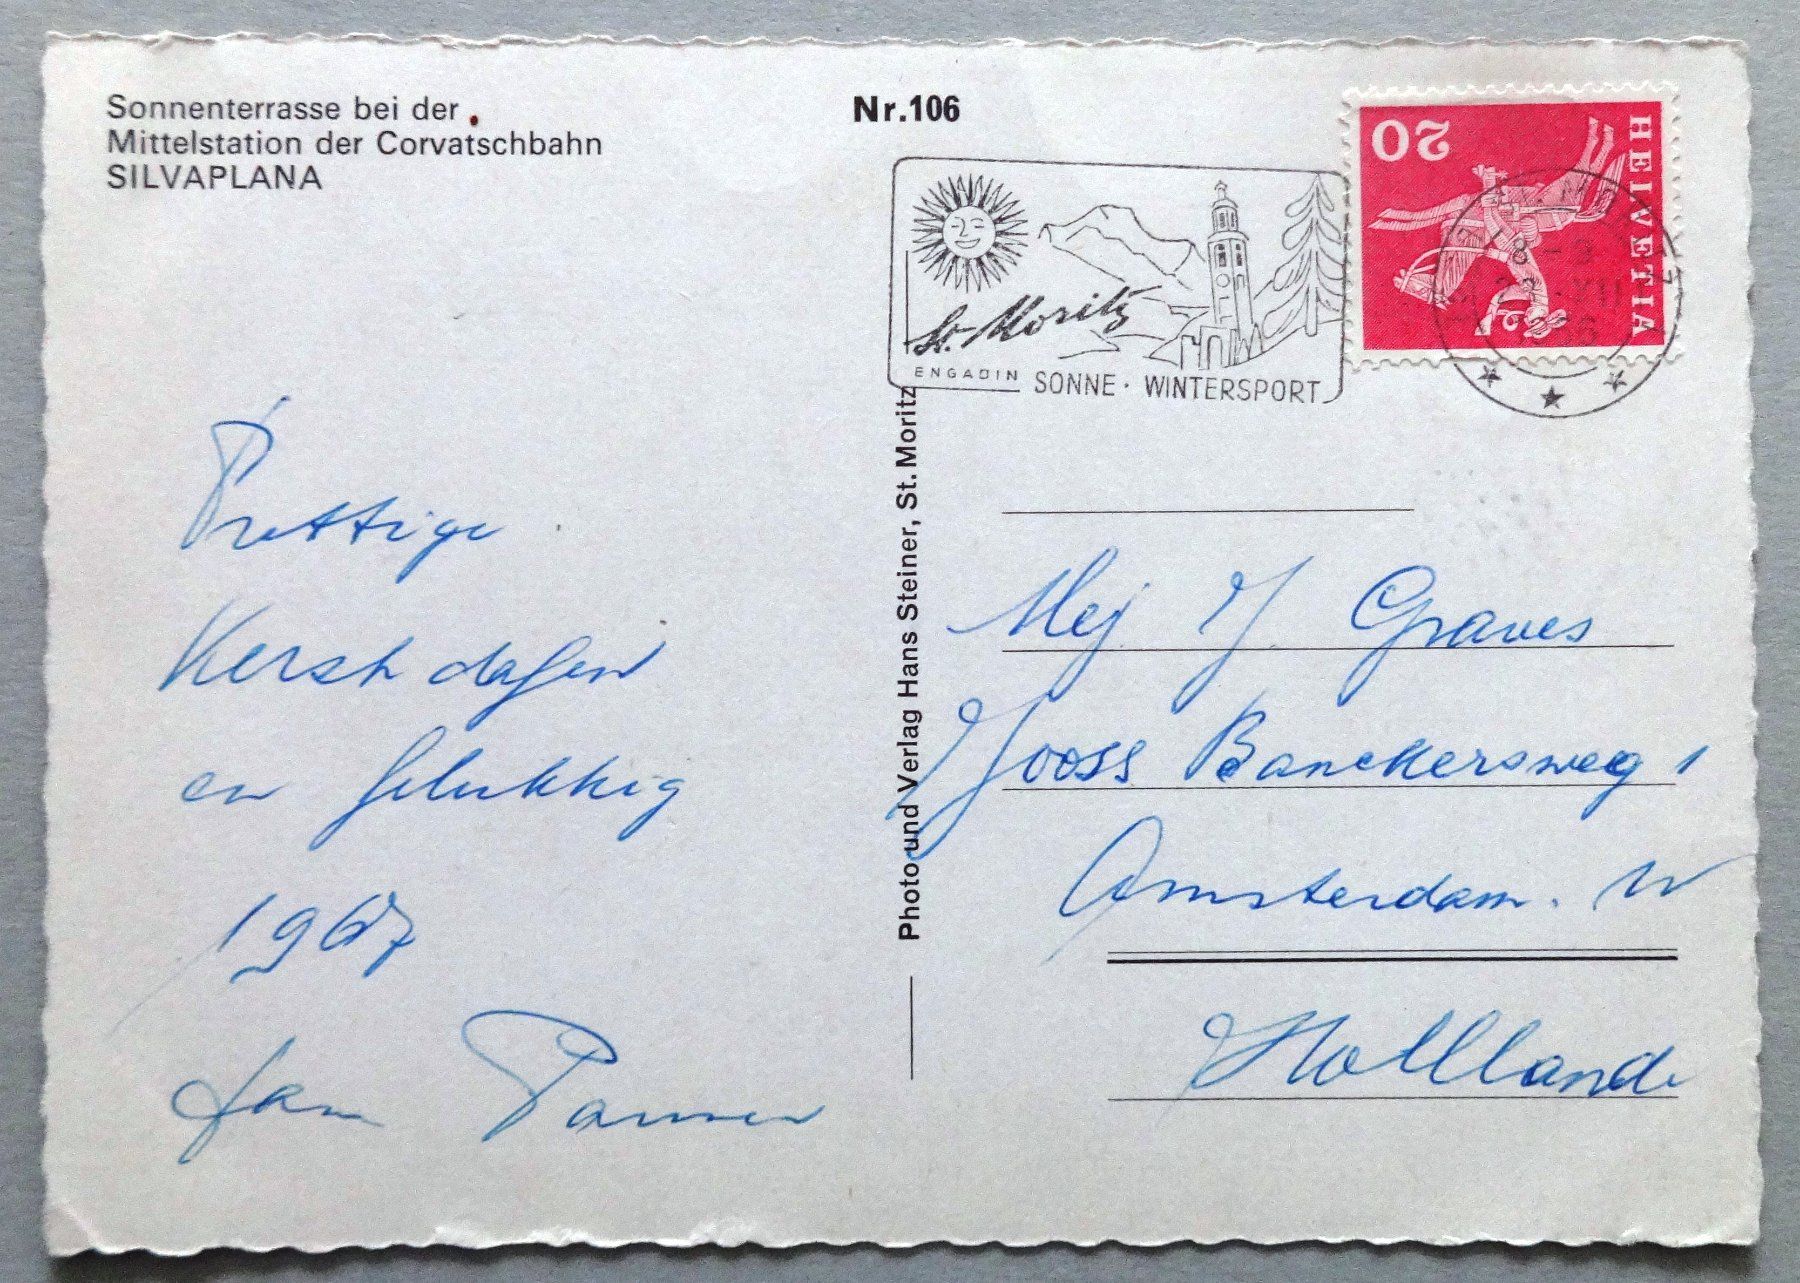 Sonnenterrasse bei der
Mittelstation der Corvatschbahn
SILVAPLANA
Nr.106
HELVETIA
20
St. Moritz
ENGADIN SONNE · WINTERSPORT
Photo und Verlag Hans Steiner, St. Moritz
Prettige
Kerst dagen
en gelukkig
1967
Jan
Mej J. Graves
Jooss Banckersweg 1
Amsterdam. W
Holland